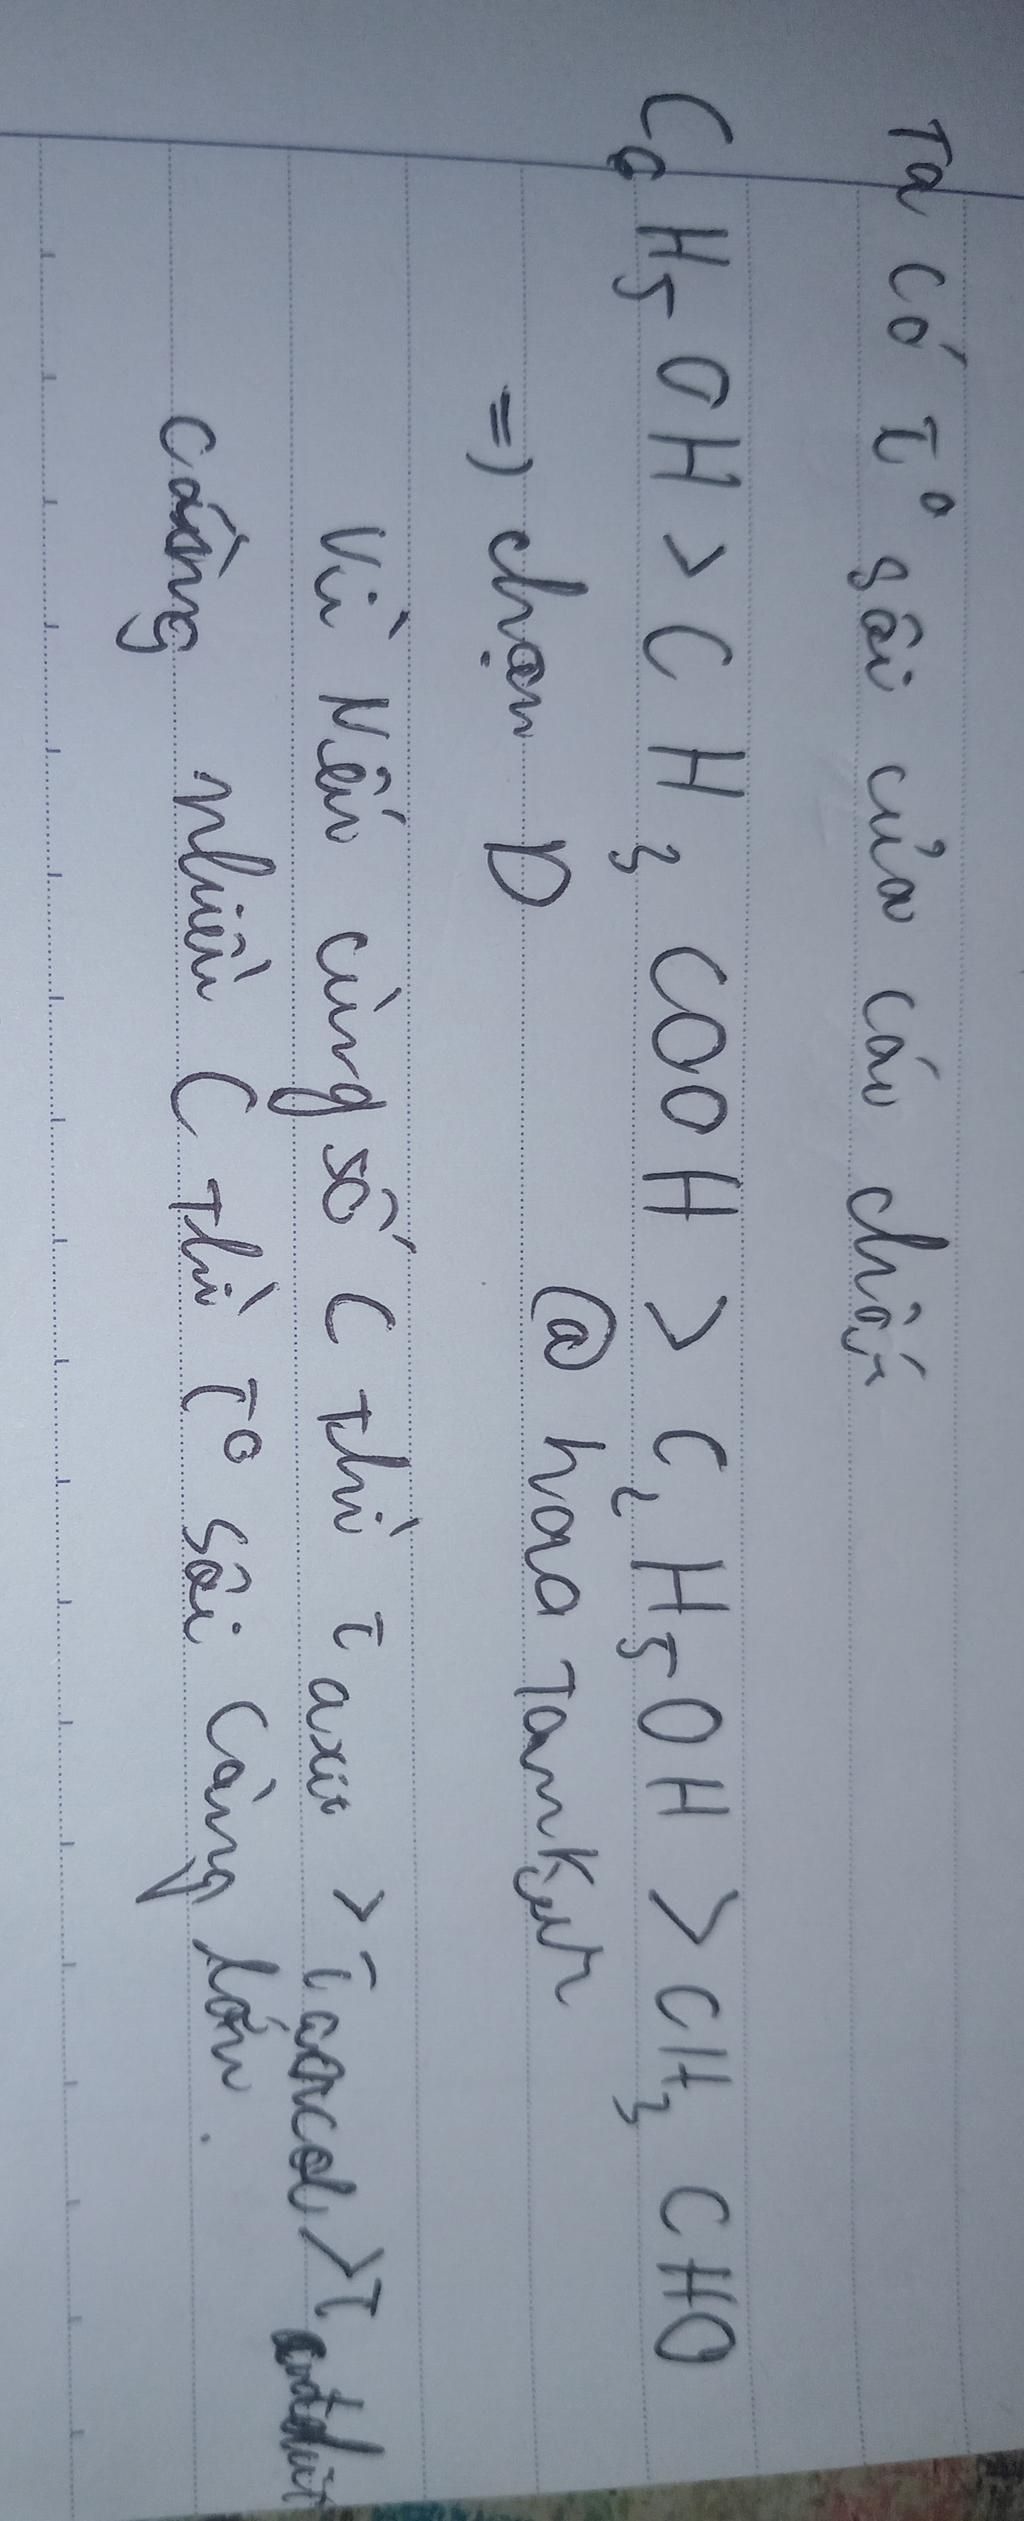 Ta có t° sôi của các chất
C6H5OH > CH3COOH > C2H5OH > CH3CHO
=) chọn D
@ hoa Tankun
Vì Nếu cùng số C thì T axit > T ancol > T anđehit
Càng nhiều C thì T° sôi Càng lớn.